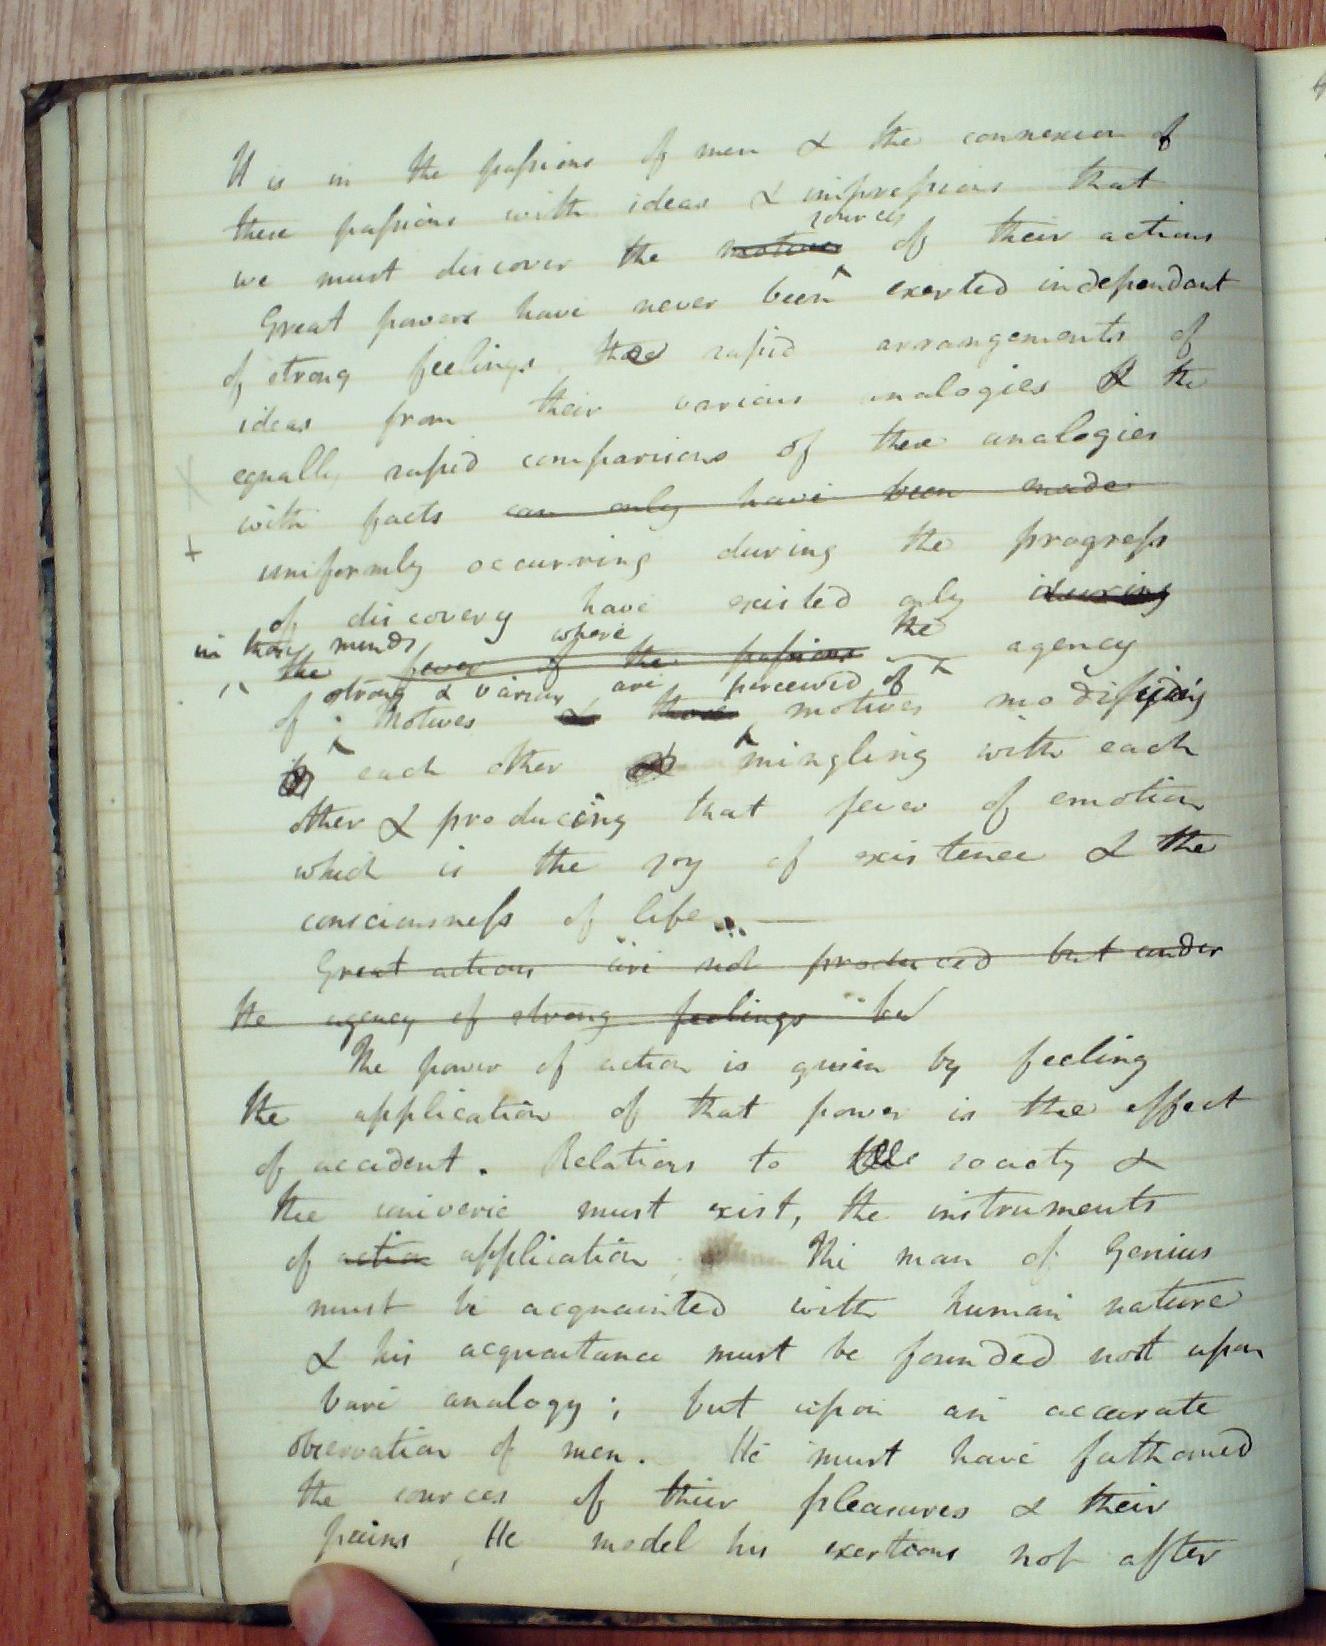 It is in the passions of men & the connexion of
these passions with ideas & impressions that
sources
we must discover the motives of their actions
Great powers have never been exerted independant
of strong feelings. The rapid arrangements of
ideas from their various analogies & the
equally rapid comparisons of these analogies
with facts can only have been made
uniformly occurring during the progress
of discovery have existed only during
in those minds where the
the fever of the passions agency
strong & various are perceived of
of motives & those motives modifying
each other mingling with each
other & producing that fever of emotion
which is the joy of existence & the
consciousness of life. —
Great actions are not produced but under
the agency of strong feelings
The power of action is given by feeling
the application of that power is the effect
of accident. Relations to society &
the universe must exist, the instruments
of action application The man of Genius
must be acquainted with human nature
& his acquaitance must be founded not upon
bare analogy; but upon an accurate
observation of men. He must have fathomed
the sources of their pleasures & their
pains, He model his exertions not after